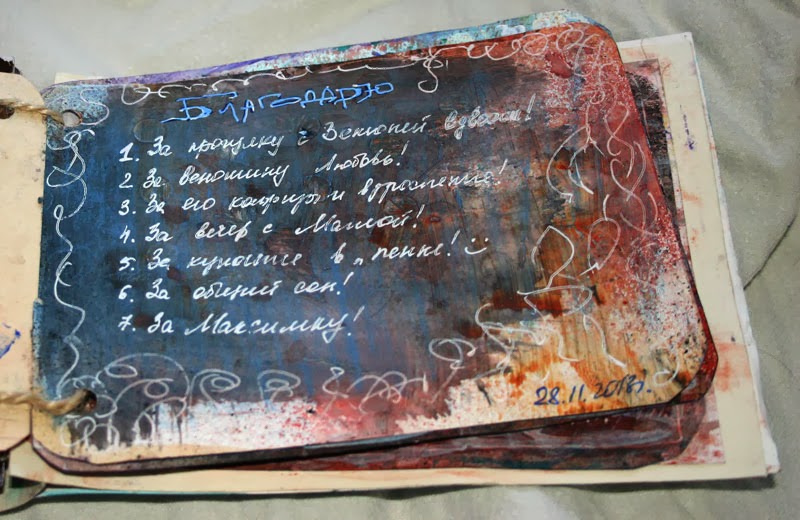 Благодарю
1. За прогулку с Венюшей вдвоем!
2. За венюшину Любовь!
3. За его капризы и взросление!
4. За вечер с Машей!
5. За купание в "пенке! :)
6. За общий сон!
7. За Максимку!
28.11.2013г.